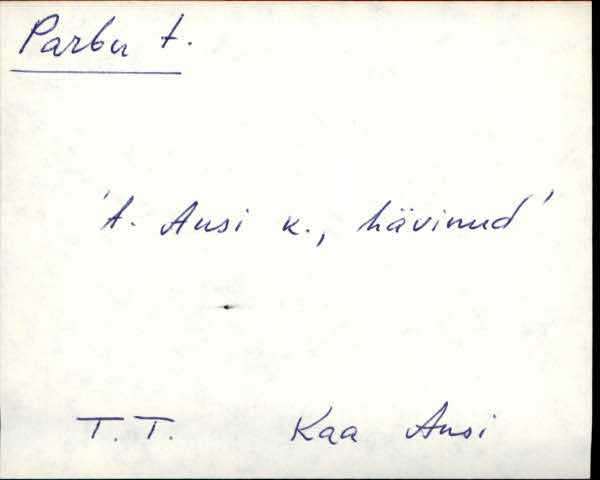 Parbu t.
't. Ansi k., hävinud'
T.T. Kaa Ansi